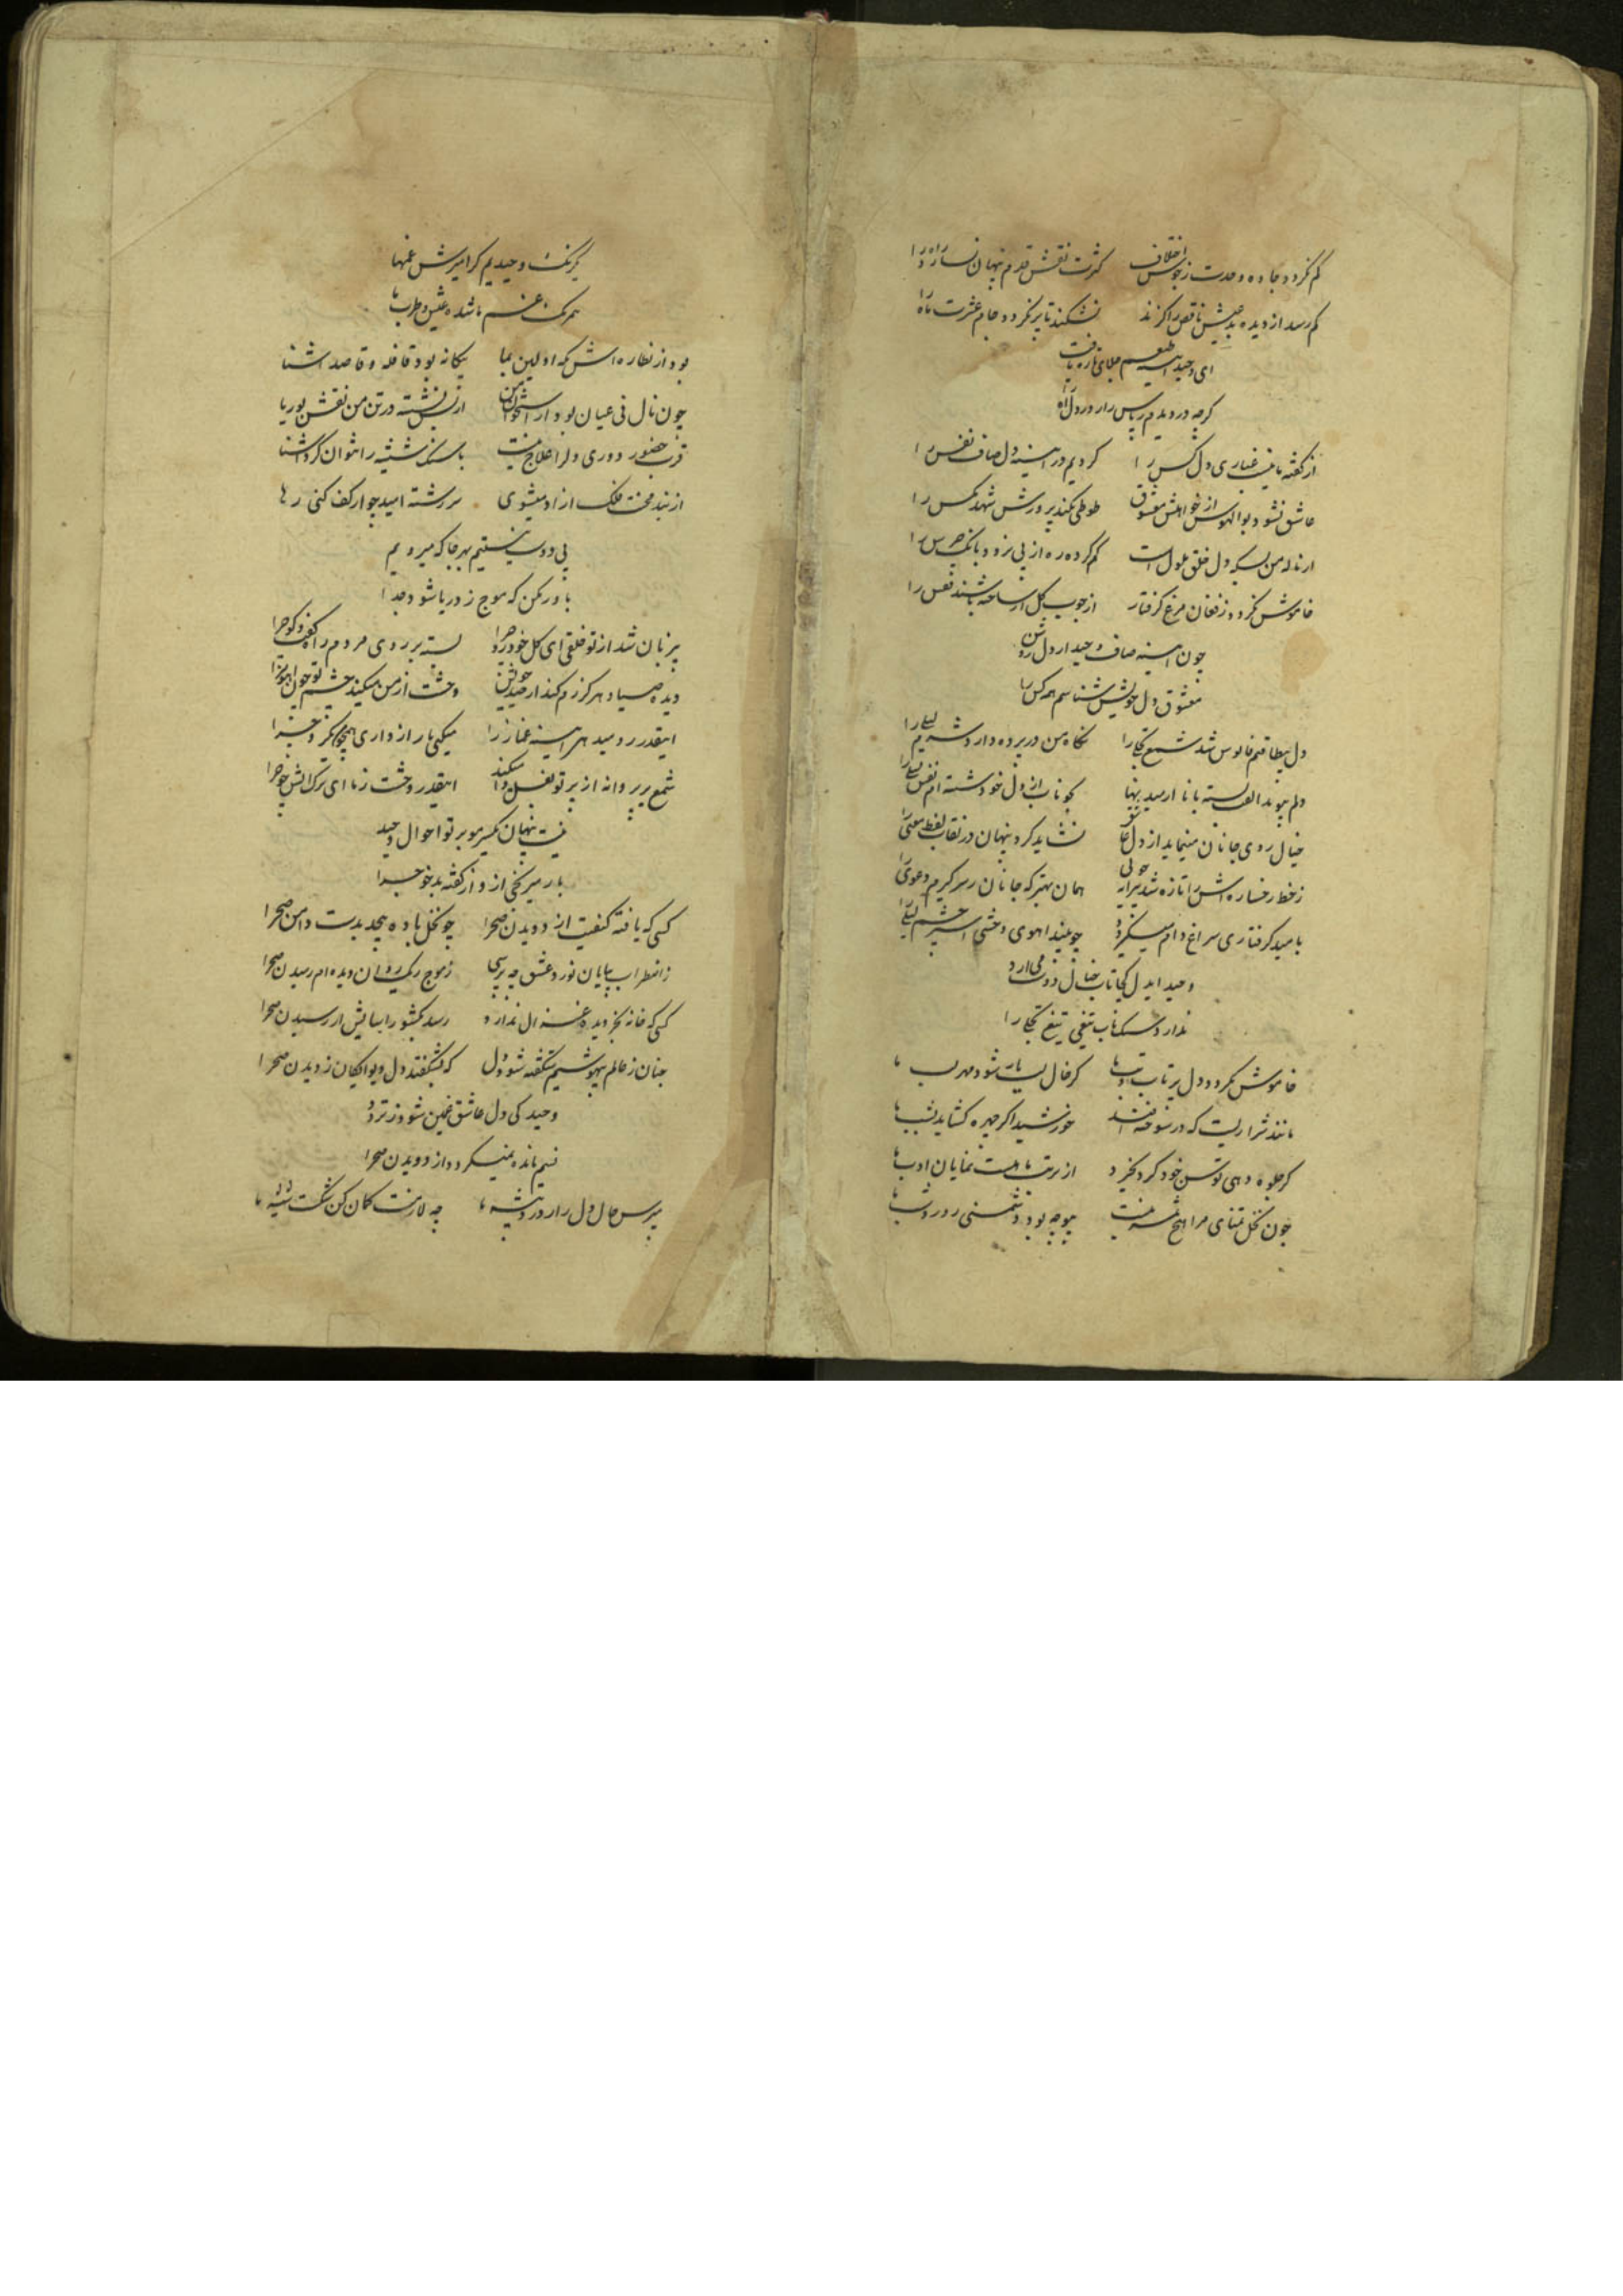 کم نکردد جاده وحدت ز جوش اختلاف کثرت نقش قدم پنهان نسازد راه را
کم رسد از دیده بد عیش ناقص را کزند نشکند تا پر نکردد جام عشرت ماه را
ای وحید طبعم جلای تازه یافت
کرچه در دیدم پاس راز در دل آه را
از کفته ما نیست غباری دل کس را کردیم در آینه دل صاف نفس را
عاشق نشود بوالهوس از خواهش معشوق طوطی نکند پرورش شهد مکس را
از ناله من بسکه دل خلق ملول است کم کرده ره از پی نرود بانک جرس را
خاموش نکردد ز فغان مرغ کرفتار از چوب کل ار ساخته باشند قفس را
چون آینه صاف وحید از دل روشن
معشوق دل خویش شناسم همه کس را
دل بیطاقتم فانوس شد شمع تجلی را نکاه من در پرده دارد شرم لیلی را
دلم پیوند الفت بسته با ناز
خیال روی جانان مینماید از دل عاشق نشاید کرد پنهان در نقاب لفظ معنی را
ز خط رخساره اش را تازه شد پیرایه خوبی همان بهتر که جانان از سر کیرم دعوی را
بامید کرفتاری سراغ دام میکردد چو بیند اهوی وحشی اسیر چشم لیلی را
وحید این دل کجا تاب خیال دوست می ارد
ندارد سنک تاب تیغی تیغ تجلی را
خاموش نکردد دل پر تاب و تب ما کر خال لب یار شود مهر لب ما
مانند شراریست که در سوخته افتد خورشید اکر چهره کشاید بشب ما
کر جلوه دهی توسن خود کرد نخیزد از تربت ما هست نمایان ادب ما
چون نخل تمنای مرا هیچ ثمر نیست بیوجه بود دشمنی روز و شب ما
یکرنک وحیدیم کز امیزش غمها
همرنک غم ما شده عیش و طرب ما
بود از نظاره اش نکه اولین بما بیکانه بود قافله و قاصد آشنا
چون نال نی عیان بود از استخوان من از بس نشسته در تن من نقش بوریا
قرب حضور دوری دلرا علاج نیست با سنک شیشه را نتوان کرد آشنا
از بند محنت فلک ازاد میشوی سررشته امید چو از کف کنی رها
بی دوست نیستیم بهر جا که میرویم
باور مکن که موج ز دریا شود جدا
پر زبان شد از تو خلقی ای کل خودرو چرا بسته بر روی مردم راه کفت و کو چرا
دیده صیاد هرکز رم کند از صید خویش وحشت از من میکند چشم تو چون اهو چرا
اینقدر رو میدهی آینه غماز را میکنی با رازداری همچو من رو چرا
شمع بر پروانه از پرتو بغل وا میکند اینقدر وحشت ز ما ای ترک آتش خو چرا
نیست پنهان یکسر مو بر تو احوال وحید
بار میرنجی از و از کفته بدخو چرا
کسی که یافته کیفیت از دویدن صحرا چو نخل باده بپیچد بدست دامن صحرا
ز اضطراب بیابان نورد عشق چه پرسی ز موج ریک روان دیده ام رمیدن صحرا
کسی که خانه بجز دیده غزال ندارد رسد بکشور اسایش از رسیدن صحرا
چنان ز عالم بیهوشیم شکفته شود دل که بشکفد دل دیوانکان ز دیدن صحرا
وحید کی دل عاشق غمین شود ز تردد
نسیم مانده نمیکردد از دویدن صحرا
مپرس حال دل زار درد پیشه ما چه لازمست کمان کن شکست شیشه ما